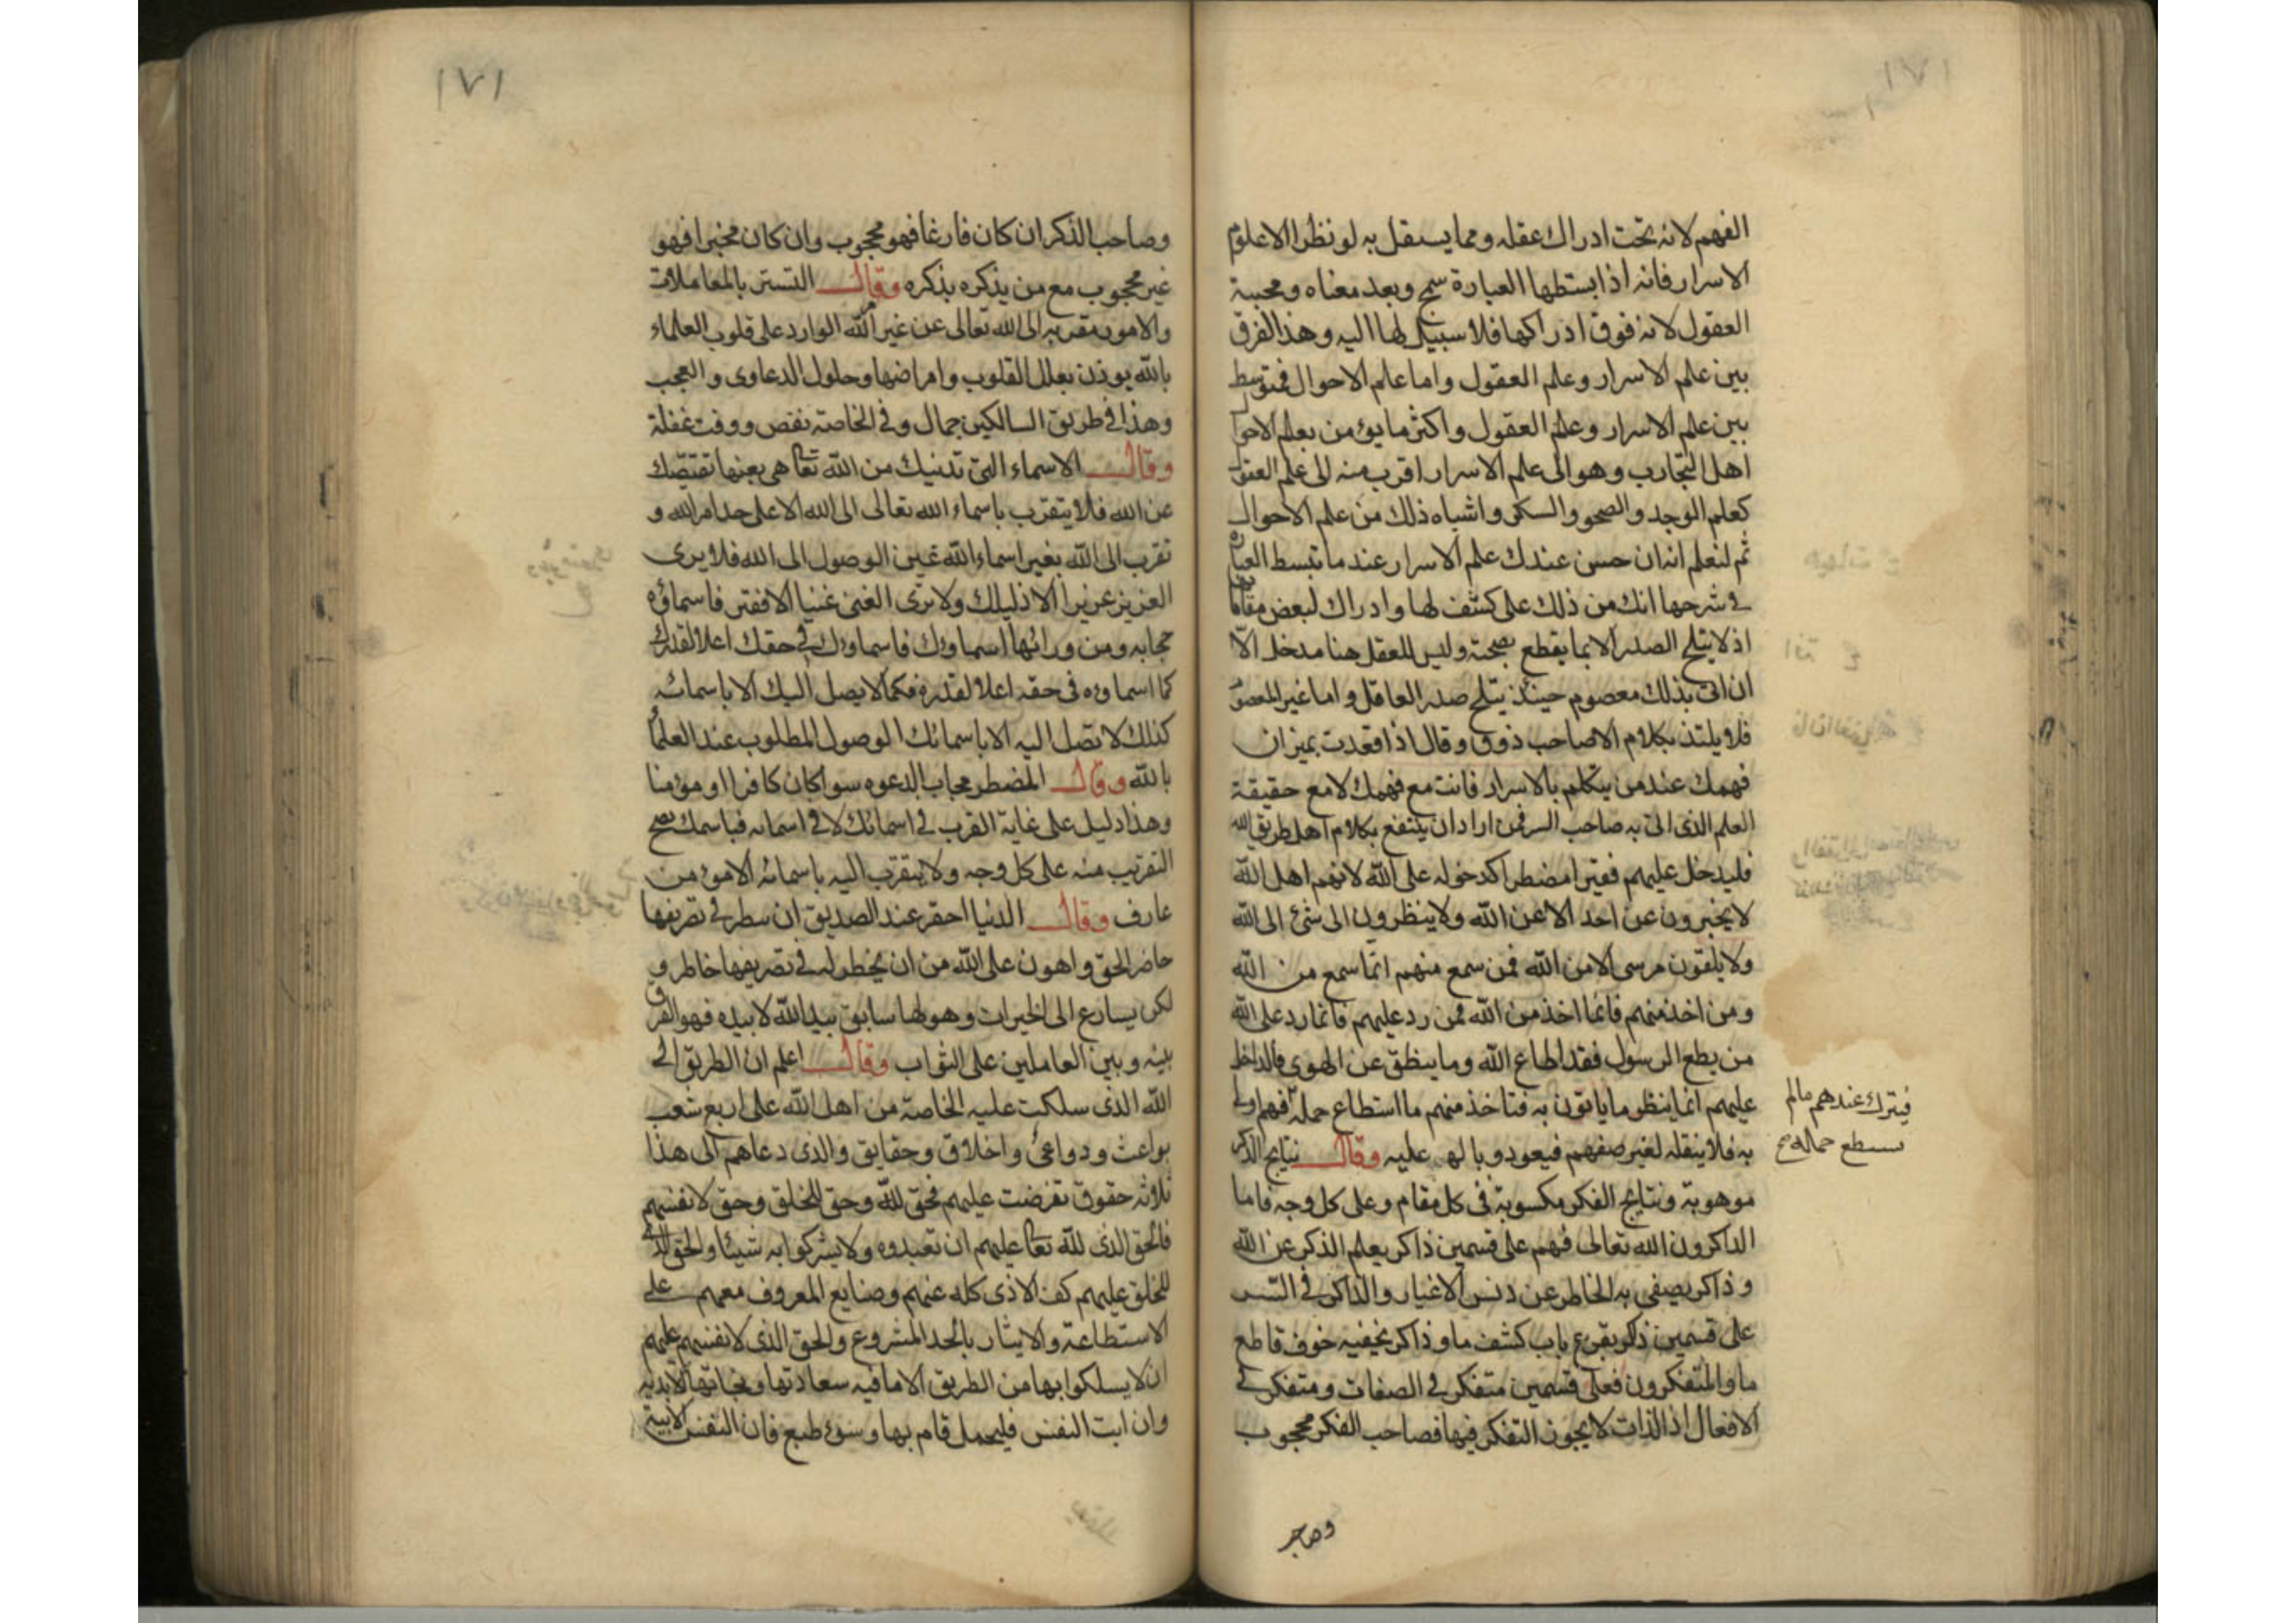 الفهم لانه تحت ادراك عقله ومما يستقل به لو نظر الا علوم
الاسرار فانه اذا ابسطها العبارة سمج وبعد معناه ومجبه
العقول لانه فوق ادراكها فلا سبيل لها اليه وهذا الفرق
بين علم الاسرار وعلم العقول واما علم الاحوال فمتوسط
بين علم الاسرار وعلم العقول واكثر ما يؤمن بعلم الاحوال
اهل التجارب وهو الى علم الاسرار اقرب منه الى علم العقول
كعلم الوجد والصحو والسكر واشباه ذلك من علم الاحوال
ثم لتعلم انه ان حسن عندك علم الاسرار عند ما تبسط العبارة
في شرحها انك من ذلك على كشف لها وادراك لبعض مقاماتها
اذ لا يثلج الصدر الا بما يقطع بصحته وليس للعقل هنا مدخل الا
ان اتى بذلك معصوم حينئذ يثلج صدر العاقل واما غير المعصوم
فلا يلتذ بكلامه الا صاحب ذوق وقال اذا قعدت بميزان
فهمك عند من يتكلم بالاسرار فانت مع فهمك لا مع حقيقة
العلم الذي اتى به صاحب السر فمن اراد ان ينتفع بكلام اهل طريق الله
فليدخل عليهم فقيرا مضطرا كدخوله على الله لانهم اهل الله
لا يخبرون عن احد الا عن الله ولا ينظرون الى شئ الى الله
ولا يلقون من شئ الا من الله فمن سمع منهم انما سمع من الله
ومن اخذ منهم فانما اخذ من الله فمن رد عليهم فانما رد على الله
من يطع الرسول فقد اطاع الله وما ينطق عن الهوى فالداخل
عليهم انما ينظر ما ياتون به فتاخذ منهم ما استطاع حمله
فيترك عندهم مالم
يستطع حماله صح
به فلا ينقله لغير صفهم فيعود وبالها عليه وقال نتايج الذكر
موهوبة ونتايج الفكر مكسوبة في كل مقام وعلى كل وجه فاما
الذاكرون الله تعالى فهم على قسمين ذاكر يعلم الذكر عن الله
وذاكر يصفى به الخاطر عن دنس الاغيار والذاكر في السر
على قسمين ذاكر يقرع باب كشف ما وذاكر يخفيه خوف قاطع
ما والمتفكرون فعلى قسمين متفكر في الصفات ومتفكر في
الافعال اذ الذات لا يجوز التفكر فيها فصاحب الفكر محجوب
وصاحب
١٧١
وصاحب الذكر ان كان فارغا فهو محجوب وان كان مخبرا فهو
غير محجوب مع من يذكره بذكره وقال التستر بالمعاملات
والامور مقربه الى الله تعالى عن غير الله الوارد على قلوب العلماء
بالله يوذن بعلل القلوب وامراضها وحلول الدعاوى والعجب
وهذا في طريق السالكين جمال وفي الخاصة نقص ووقت غفلة
وقال الاسماء التي تدنيك من الله تعا هي بعينها تقتصك
عن الله فلا يتقرب باسماء الله تعالى الى الله الا على حد امر الله و
تقرب الى الله بغير اسماء الله غير الوصول الى الله فلا يرى
العزيز عزيزا الا ذليلك ولا يرى الغنى غنيا الا فقير فاسماؤه
حجابه ومن ورائها اسماوك فاسماوك في حقك اعلا لقدرك
كما اسماوه في حقه اعلا لقدره فكما لا يصل اليك الا باسمائه
كذلك لا تصل اليه الا باسمائك الوصول المطلوب عند العلماء
بالله وقال المضطر مجاب الدعوه سوا كان كافرا او مؤمنا
وهذا دليل على غاية القرب في اسمائك لا في اسمائه فباسمك يصح
التقريب منه على كل وجه ولا يتقرب اليه باسمائه الا مؤمن
عارف وقال الدنيا احقر عند الصديق ان ينظر في تصريفها
حاضر الحق واهون على الله من ان يخطر له في تصريفها خاطر و
لكن يسارع الى الخيرات وهو لها سابق بيد الله لا بيده فهو الفرق
بينه وبين العاملين على الثواب وقال اعلم ان الطريق الى
الله الذي سلكت عليه الخاصة من اهل الله على اربع شعب
بواعث ودواعي واخلاق وحقايق والذي دعاهم الى هذا
ثلاثه حقوق تفرضت عليهم فحق لله وحق للخلق وحق لانفسهم
فالحق الذي لله تعا عليهم ان تعبدوه ولا يشركوا به شيئا والحق الذي
للخلق عليهم كف الاذى كله عنهم وصنايع المعروف معهم على
الاستطاعة والايثار بالحد المشروع والحق الذي لانفسهم عليهم
ان لا يسلكوا بها من الطريق الا ما فيه سعادتها ونجاتها الابديه
وان ابت النفس فليحمل قام بها وسوء طبع فان النفس الابية